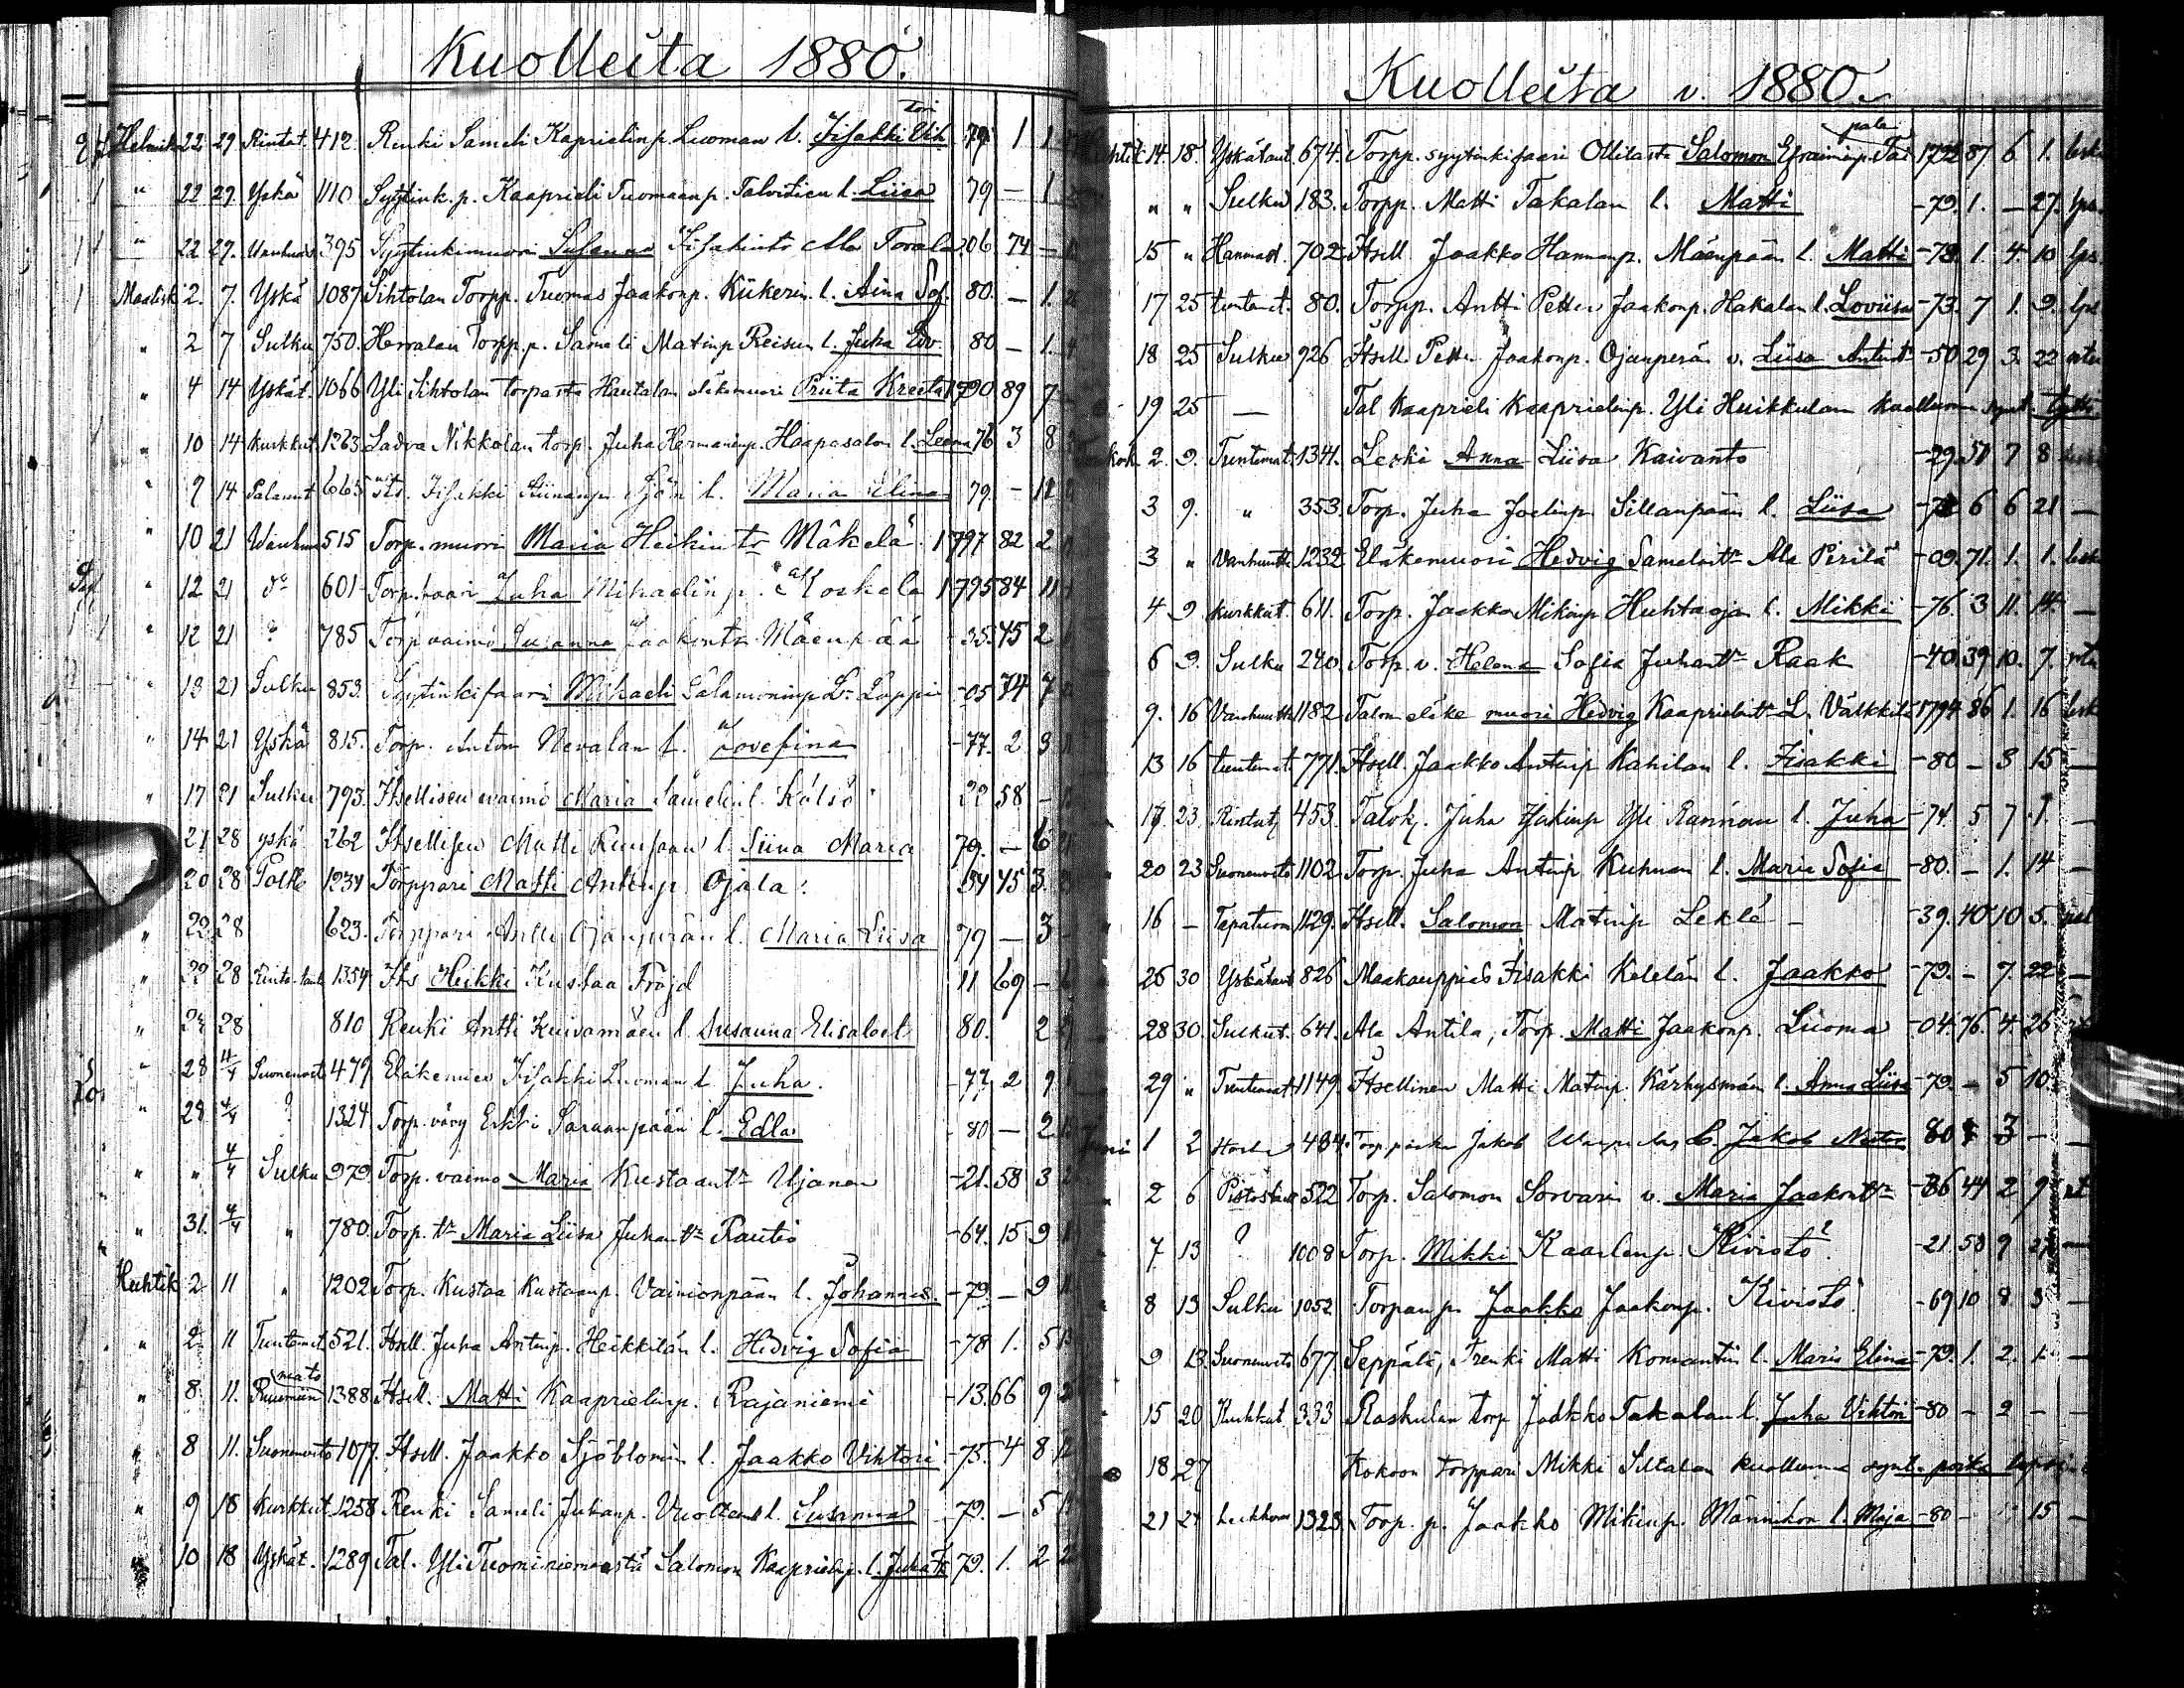 Kuolleita 1880.
Helmik 22 29 Rintat. 412 Renki Sameli Kaprielinp. Luoman l. Iisakki Vih tori 79 1 1
" 22 29 Yskä 1110 Syytink. p. Kaaprieli Tuomaanp. Talvitien l. Liisa 79 — 1
" 22 29. Vanhuus 395 Syytinkimuori Susanna Iisakintr Ala Torala 06 74 —
Maalisk 2. 7. Yskä 1087 Sihtolan Torpp. Tuomas Jaakonp. Kiikerin l. Aina Sof. 80. — 1.
" 2 7 Sulku 750. Herralan Torpp. p. Sameli Matinp Reisun l. Juha Edv. 80 — 1.
" 4 14 Yskät. 1066 Yli Sihtolan torpasta Hautalan eläkemuori Priita Kreeta 1790 89 7
" 10 14 Kurkkut. 1263 Ladva Nikkolan torp. Juha Hermaninp. Haapasalon l. Leena 76 3 8
" 9 14 Palannt 663 Its. Iisakki l. Maria Elina 79. — 11
" 10 21 Wanhuus 515 Torp. muori Maria Heikintr Mäkelä 1797 82 2
" 12 21 do 601 Torp. faari Juha Mihaelinp. Koskela 1795 84 11
" 12 21 ? 785 Torp vaimo Susanna Jaakontr Mäenpää -35. 45 2
" 13 21 Sulku 853. Syytinkifaari Mihaeli Salamoninp L. Lappi -05 74 7
" 14 21 Yskä 815. Torp. Anton Nevalan l. Josefina -77. 2 9
" 17 21 Sulku 793. Itsellisen vaimo Maria Samelin l. Kälsö 22 58 —
21 28 yskä 262 Itsellisen Matti Ruuspään l. Siina Maria 79. — 6
20 28 Poltt 1234 Torppari Matti Antinp. Ojala. 34 45 3.
" 22 28 623. Torppari Antti Ojanperän l. Maria Liisa 79 — 3
" 22 28 Rinta-taut 1354 Its Heikki Kustaa Fröjd 11 69 —
" 24 28 810 Renki Antti Kuivamäen l. Susanna Elisabet 80. 2
" 28 4/4 Suonenveto 479 Eläkemies Iisakki Luoman l. Juha. -77, 2 9
" 28 4/4 ? 1324 Torp. vävy Erkki Saraanpään l. Edla -80 — 2
" " 4/4 Sulku 979. Torp. vaimo Maria Kustaantr Ujanen -21. 58 3
" 31. 4/4 " 780. Torp. tr Maria Liisa Juhantr Rautio -64. 15 9
Huhtik 2 11 " 1202 Torp. Kustaa Kustaanp. Vainionpään l. Johannes. -79 — 9
" 2 11 Tuntemat 521. Itsell. Juha Antinp. Heikkilän l. Hedvig Sofia -78 1. 5
" 8. 11. Ruumiin mato 1388 Itsell. Matti Kaaprielinp. Rajaniemi -13. 66 9
" 8 11. Suonenveto 1077. Itsell. Jaakko Sjöblomin l. Jaakko Vihtori -75. 4 8
" 9 18 Kurkkut. 1258 Renki Sameli Juhanp. Vuollen l. Susanna -79. — 5
" 10 18 Yskät. 1289 Tal. Yli Tuominiemestä Salomon Kaaprielinp. l. Juha 79. 1. 2
Kuolleita v. 1880.
14. 18. Yskätaut 674. Torpp. syytinkifaari Ollilasta Salomon Efraiminp. Tai pale 1792 87 6 1. leski
" " Sulku 183. Torpp. Matti Takalan l. Matti -79. 1. — 27. lps.
15 " Hammast. 702 Itsell Jaakko Hannunp. Mäenpään l. Matti -78. 1. 4. 10 lps.
17 25 tuntemat. 80. Torpp. Antti Petter Jaakonp. Hakalan l. Loviisa -73. 7 1. 9. lps
18 25 Sulku 926 Itsell. Petter Jaakonp. Ojanperän v. Liisa Antintr -50 29 3. 22
19 25 — Tal Kaaprieli Kaaprielinp. Yli Huikkulan kuolluna synt. tyttö
2. 9. Tuntemat. 1341. Leski Anna Liisa Kaivanto -29. 50 7 8
3 9. " 353. Torp. Juha Joelinp. Sillanpään l. Liisa 6 6 21 —
3 " Vanhuutta 1232 Eläkemuori Hedvig Samelintr Ala Pirilä -09. 71. 1. 1. lesk
4 9 Kurkkut. 611. Torp. Jaakko Mikinp Huhtaojan l. Mikki -76. 3 11. 14. —
6 9. Sulku 240. Torp. v. Helena Sofia Juhantr Raak -40. 39 10. 7.
9. 16 Vanhuutta 1182 Talon eläke muori Hedvig Kaaprielintr L. Välkkilä 1794 86 1. 16 lesk
13 16 tuntemat. 771. Itsell. Jaakko Antinp Kahilan l. Iisakki -80 — 3 15 —
17 23. Rintat 453. Talok. Juha Iisakinp Yli Rannan l. Juha -74. 5 7 1. —
20 23 Suonenveto 1102 Torp. Juha Antinp Kuhnan l. Maria Sofia -80. — 1. 14 —
16 — Tapaturm. 1129. Itsell. Salomon Matinp Leklä — -39. 40 10 5.
26 30 Yskätaut 826 Maakauppias Iisakki Keletän l. Jaakko -79. — 7. 22 —
28 30. Sulkut. 641. Ala Antila, Torp. Matti Jaakonp. Luoma -04. 76. 4. 26
29 " Tuntemat 1149. Itsellinen Matti Matinp. Kärhysmän l. Anna Liisa -79. — 5 10.
Juni 1 2 434. Torpparin Jakob l. Jakob Nestor 80 3 — —
2 6 Pistosta 522 Torp. Salomon Sorvarin v. Maria Jaakontr -36 44 2 9
7 13 ? 1008 Torp. Mikki Kaarlenp. Kivistö? -21. 58 9 27 —
8 13 Sulku 1052. Torpan p. Jaakko Jaakonp. Kivistö -69 10 8 3 —
9 13. Suonenveto 677. Seppälä, Trenki Matti Komantin l. Maria Elina -79. 1. 2. 1. —
15 20 Kurkkut. 333 Raskulan torp Jaakko Takalan l. Juha Vihtori -80 — 2 — —
18 27 Kokoon torppari Mikki Siltalan kuolluna synt. poika lapsi
21 27 1323. Torp. p. Jaakko Mikinp. Männikön l. Maja -80 — 15 —